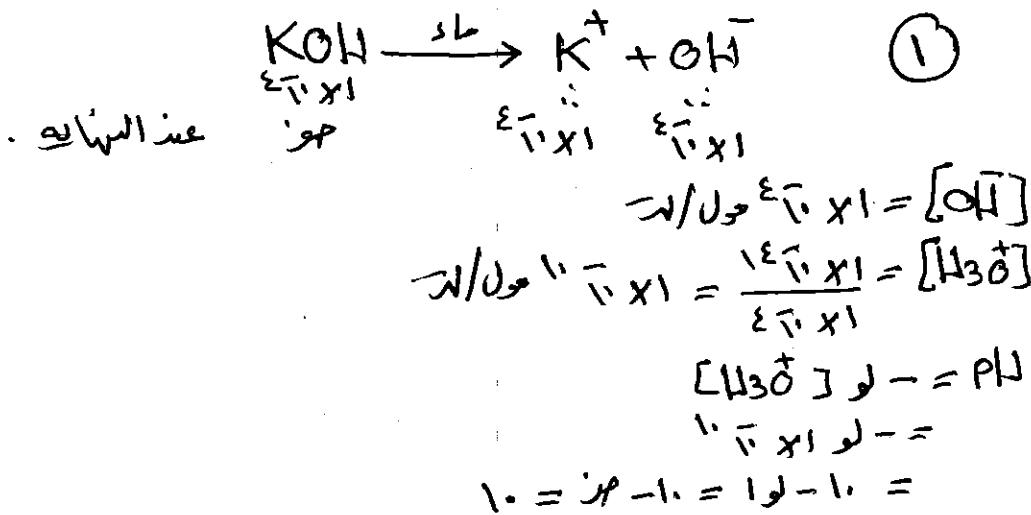 ① KOH ماء → K⁺ + OH⁻
١×١٠⁻٤ ١×١٠⁻٤ ١×١٠⁻٤
عند النهاية . صفر
[OH⁻] = ١×١٠⁻٤ مول/لتر
[H3O⁺] = ١×١٠⁻١٤ / ١×١٠⁻٤ = ١×١٠⁻١٠ مول/لتر
pH = - لو [H3O⁺]
= - لو ١×١٠⁻١٠
= ١٠ - لو ١ = ١٠ - صفر = ١٠